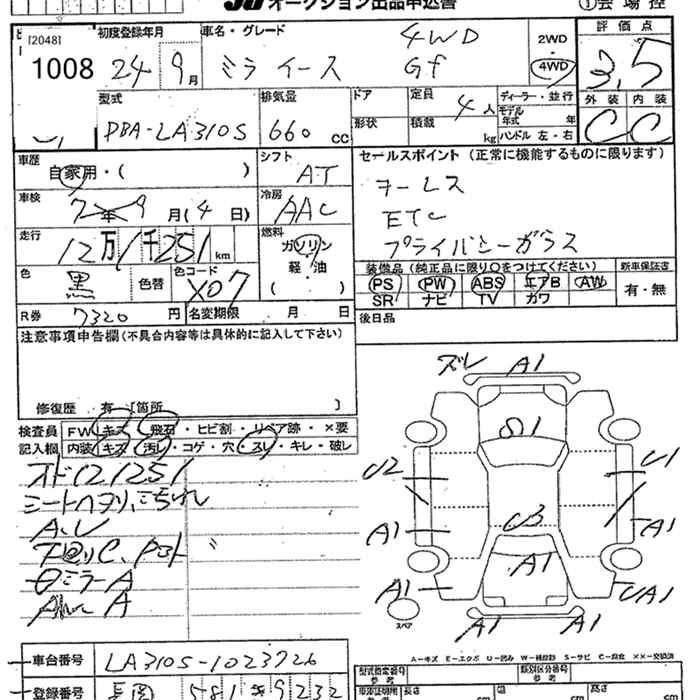 オークション出品申込書
①会場控
[2048]
1008
初度登録年月
24年9月
車名・グレード
4WD
ミライース Gf
2WD
4WD
評価点
3,5
外装 内装
C C
型式
PBA-LA310S
排気量
660 cc
ドア
形状
定員
4人
積載
kg
ディーラー・並行
モデル年式 年
ハンドル 左・右
車歴
自家用・( )
シフト
AT
車検
7年9月(4日)
冷房
AAC
走行
12万1千251km
燃料
ガソリン
軽・油
( )
色
黒
色替
色コード
X07
R券
7320円
名変期限 月 日
セールスポイント(正常に機能するものに限ります)
キーレス
ETC
プライバシーガラス
装備品(純正品に限り○をつけてください)
新車保証書
PS PW ABS エアB AW
SR ナビ TV カワ
有・無
後日品
注意事項申告欄(不具合内容等は具体的に記入して下さい)
修復歴 有 [箇所 ]
検査員
記入欄
FW キズ・飛石・ヒビ割・リペア跡・×要
内装 キズ・汚レ・コゲ・穴・スレ・キレ・破レ
オド121251
A.U
下回りC、
ミラーA
A
ズレ
A1
S1
U2
U1
A1
A1
U3
A1
A1
UA1
A1
A1
スペア
A-キズ E-エクボ U-凹み W-補修跡 S-サビ C-腐食 ××-交換済
車台番号
LA310S-1023726
登録番号
581
9232
型式指定番号
参考
類別区分番号
参考
長さ
cm
cm